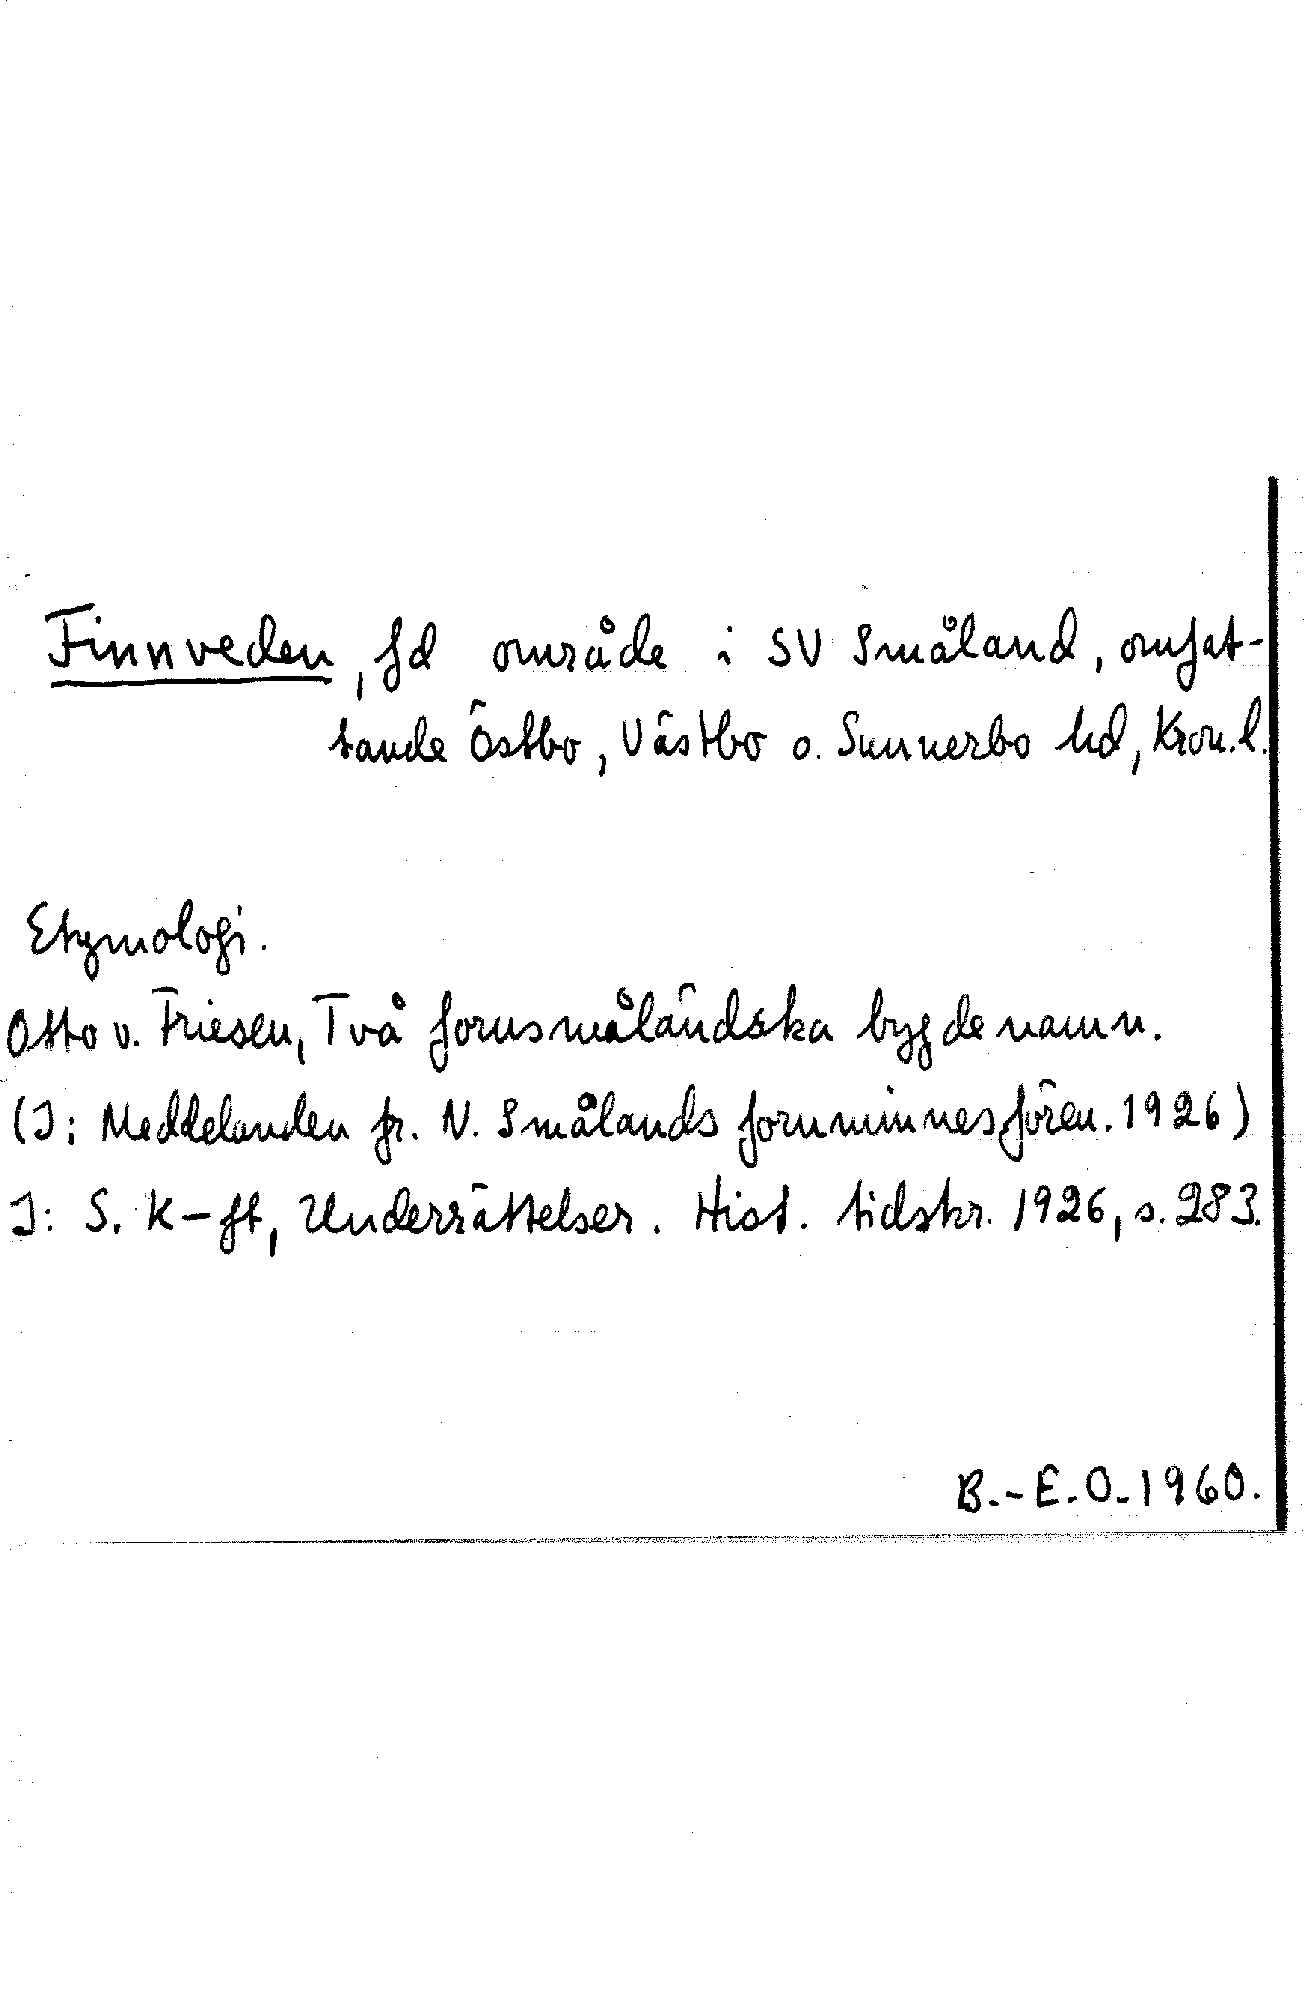 Finnveden, fd område i SV Småland, omfat-
tande Östbo, Västbo o. Sunnerbo hd, Kron. l.
Etymologi.
Otto v. Friesen, Två fornsmåländska bygdenamn.
(I: Meddelanden fr. N. Smålands fornminnesfören. 1926)
I: S. K-ft, Underrättelser. Hist. tidskr. 1926, s. 283.
B.-E.O.1960.